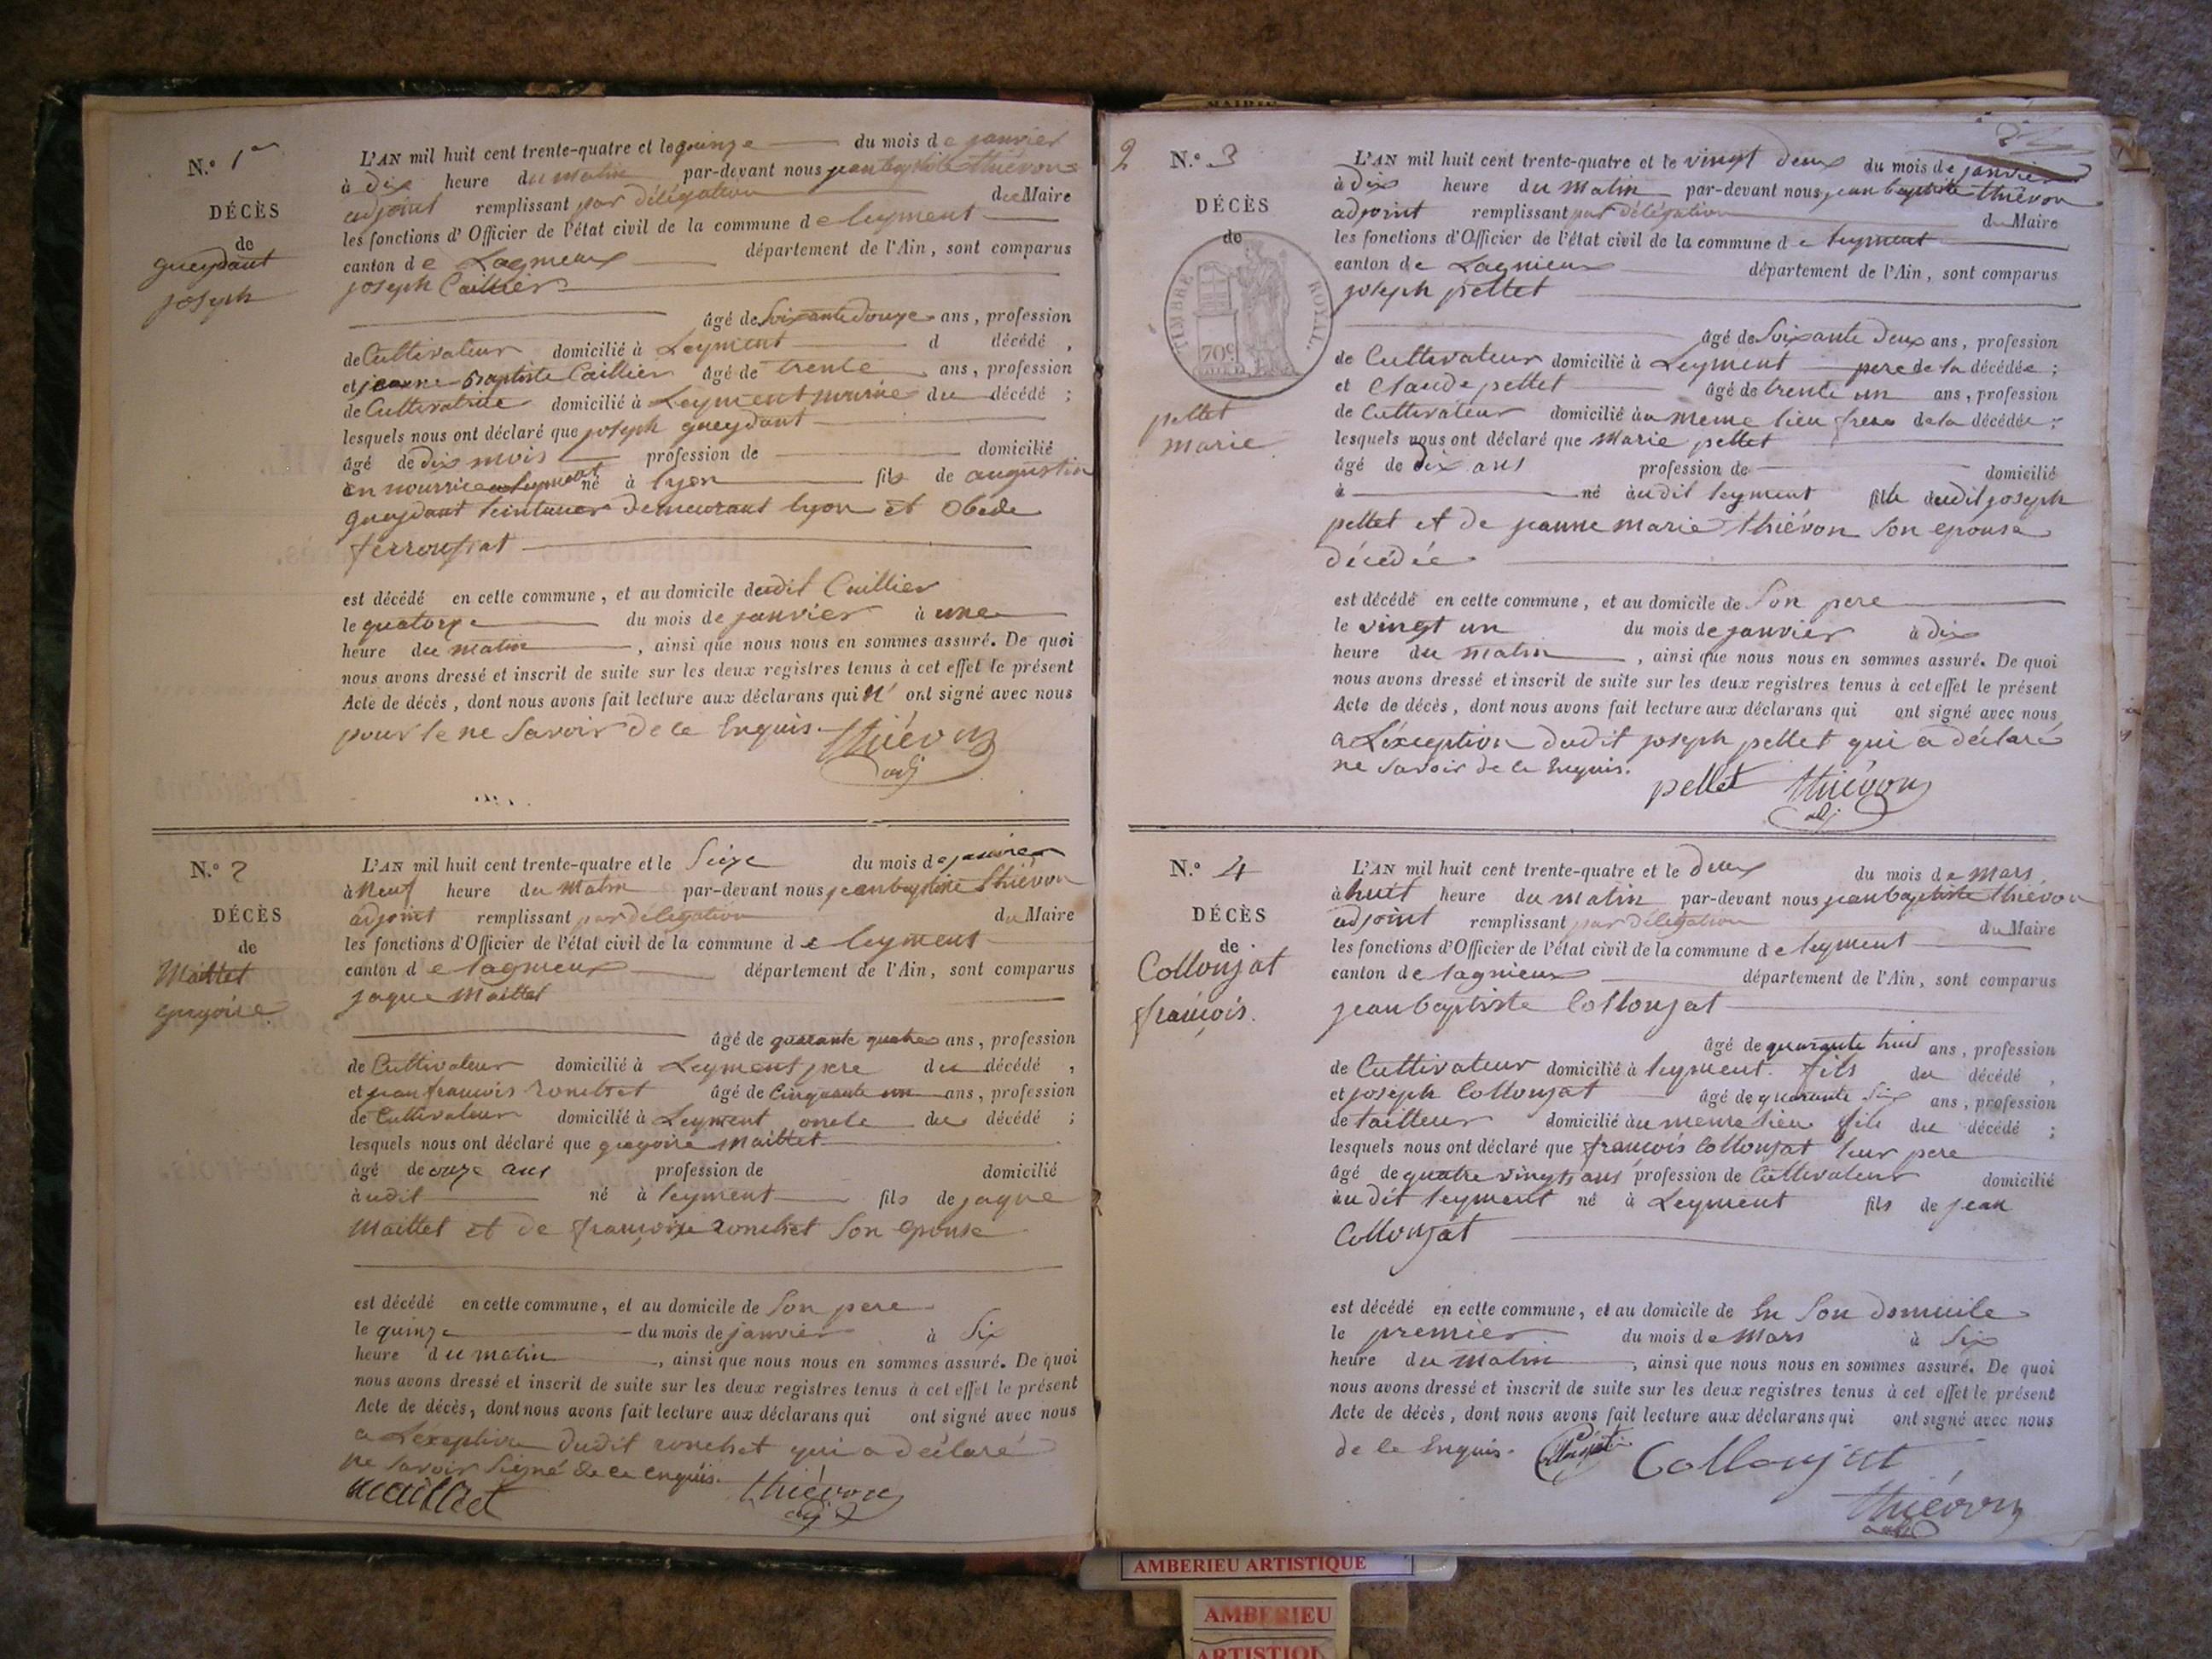 N.º 1er
DÉCÈS
de
gueydant
joseph
L'AN mil huit cent trente-quatre et le quinze du mois de janvier
à dix heure du matin par-devant nous jean baptiste thiévon
adjoint remplissant par délégation du Maire
les fonctions d'Officier de l'état civil de la commune de leyment
canton de Lagnieux département de l'Ain, sont comparus
joseph Caillier
âgé de Soixante douze ans, profession
de Cultivateur domicilié à Leyment d décédé,
et jeanne Baptiste Caillier âgé de trente ans, profession
de Cultivatrice domicilié à Leyment nourrice du décédé;
lesquels nous ont déclaré que joseph gueydant
âgé de dix mois profession de domicilié
en nourrice a leyment né à lyon fils de augustin
gueydant teinturier demeurant lyon et
est décédé en cette commune, et au domicile dudit Caillier
le quatorze du mois de janvier à une
heure du matin, ainsi que nous nous en sommes assuré. De quoi
nous avons dressé et inscrit de suite sur les deux registres tenus à cet effet le présent
Acte de décès, dont nous avons fait lecture aux déclarans qui n' ont signé avec nous
pour le ne Savoir de ce Enquis.
Thiévon
adj
N.º 2
DÉCÈS
de
Maillet
gregoire
L'AN mil huit cent trente-quatre et le Seize du mois de janvier
à Neuf heure du Matin par-devant nous jean baptiste Thiévon
adjoint remplissant par délégation du Maire
les fonctions d'Officier de l'état civil de la commune de leyment
canton de lagnieux département de l'Ain, sont comparus
jaque Maillet
âgé de quarante quatre ans, profession
de Cultivateur domicilié à Leyment pere du décédé,
et jean francois ronchet âgé de Cinquante un ans, profession
de Cultivateur domicilié à Leyment oncle du décédé;
lesquels nous ont déclaré que gregoire Maillet
âgé de onze ans profession de domicilié
audit né à leyment fils de jaque
Maillet et de françoise ronchet Son epouse
est décédé en cette commune, et au domicile de Son pere
le quinze du mois de janvier à Six
heure du matin, ainsi que nous nous en sommes assuré. De quoi
nous avons dressé et inscrit de suite sur les deux registres tenus à cet effet le présent
Acte de décès, dont nous avons fait lecture aux déclarans qui ont signé avec nous
a L'exeption dudit ronchet qui a déclaré
ne Savoir Signé de ce enquis.
Maillet thiévon
adj
2
N.º 3
DÉCÈS
de
TIMBRE ROYAL
70c
pellet
marie
L'AN mil huit cent trente-quatre et le vingt deux du mois de janvier
à dix heure du Matin par-devant nous jean baptiste thiévon
adjoint remplissant par délégation du Maire
les fonctions d'Officier de l'état civil de la commune de leyment
canton de Lagnieux département de l'Ain, sont comparus
joseph pellet
âgé de Soixante Deux ans, profession
de Cultivateur domicilié à Leyment pere de la décédée;
et Claude pellet âgé de trente un ans, profession
de Cultivateur domicilié au meme lieu frere de la décédée;
lesquels nous ont déclaré que Marie pellet
âgé de dix ans profession de domicilié
à né audit leyment fille dudit joseph
pellet et de jeanne marie thiévon Son epouse
décédée
est décédé en cette commune, et au domicile de Son pere
le vingt un du mois de janvier à dix
heure du matin, ainsi que nous nous en sommes assuré. De quoi
nous avons dressé et inscrit de suite sur les deux registres tenus à cet effet le présent
Acte de décès, dont nous avons fait lecture aux déclarans qui ont signé avec nous
a L'exception dudit joseph pellet qui a déclaré
ne Savoir de ce Enquis.
pellet thiévon
adj
N.º 4
DÉCÈS
de
Collonjat
françois.
L'AN mil huit cent trente-quatre et le deux du mois de Mars
à huit heure du matin par-devant nous jean baptiste thiévon
adjoint remplissant par délégation du Maire
les fonctions d'Officier de l'état civil de la commune de leyment
canton de lagnieux département de l'Ain, sont comparus
jean baptiste Collonjat
âgé de quarante huit ans, profession
de Cultivateur domicilié à leyment. fils du décédé,
et joseph Collonjat âgé de quarante Six ans, profession
de tailleur domicilié au meme lieu fils du décédé;
lesquels nous ont déclaré que françois Collonjat leur pere
âgé de quatre vingts ans profession de Cultivateur domicilié
au dit leyment né à Leyment fils de jean
Collonjat
est décédé en cette commune, et au domicile de En Son domicile
le premier du mois de Mars à Six
heure du Matin, ainsi que nous nous en sommes assuré. De quoi
nous avons dressé et inscrit de suite sur les deux registres tenus à cet effet le présent
Acte de décès, dont nous avons fait lecture aux déclarans qui ont signé avec nous
de ce Enquis. Collonjat
thiévon
AMBERIEU ARTISTIQUE
AMBERIEU
ARTISTIQUE